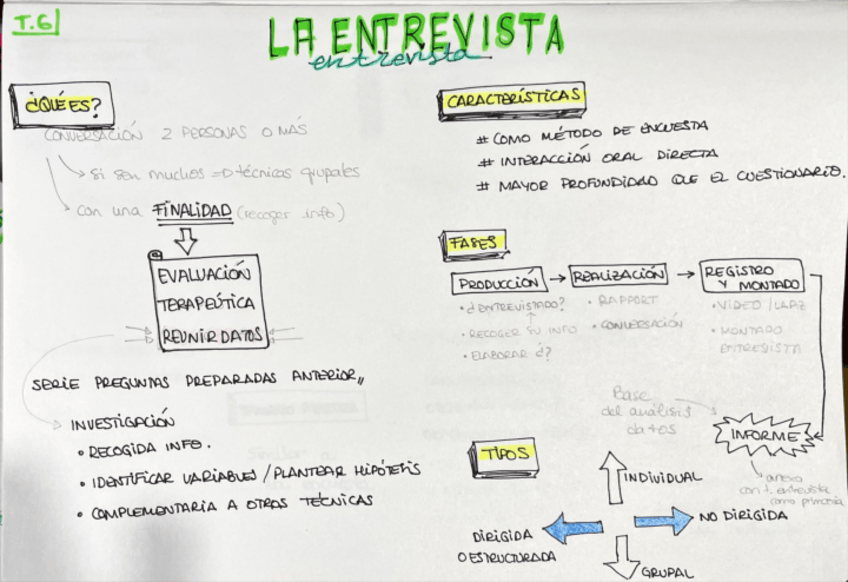 T.6
LA ENTREVISTA
entrevista
¿QUÉ ES?
CONVERSACIÓN 2 PERSONAS O MÁS
Si son muchos => técnicas grupales
con una FINALIDAD (recoger info)
EVALUACIÓN
TERAPEÚTICA
REUNIR DATOS
SERIE PREGUNTAS PREPARADAS ANTERIOR,,
INVESTIGACIÓN
• RECOGIDA INFO.
• IDENTIFICAR VARIABLES / PLANTEAR HIPÓTESIS
• COMPLEMENTARIA A OTRAS TÉCNICAS
CARACTERÍSTICAS
# COMO MÉTODO DE ENCUESTA
# INTERACCIÓN ORAL DIRECTA
# MAYOR PROFUNDIDAD QUE EL CUESTIONARIO.
FASES
PRODUCCIÓN → REALIZACIÓN → REGISTRO
Y MONTADO
• ¿ENTREVISTADO?
• RECOGER SU INFO
• ELABORAR ¿?
• RAPPORT
• CONVERSACIÓN
• VIDEO / LAPIZ
• MONTADO
ENTREVISTA
Base
del análisis
datos
INFORME
anexo
con t. entrevista
como primaria
TIPOS
INDIVIDUAL
NO DIRIGIDA
DIRIGIDA
O ESTRUCTURADA
GRUPAL